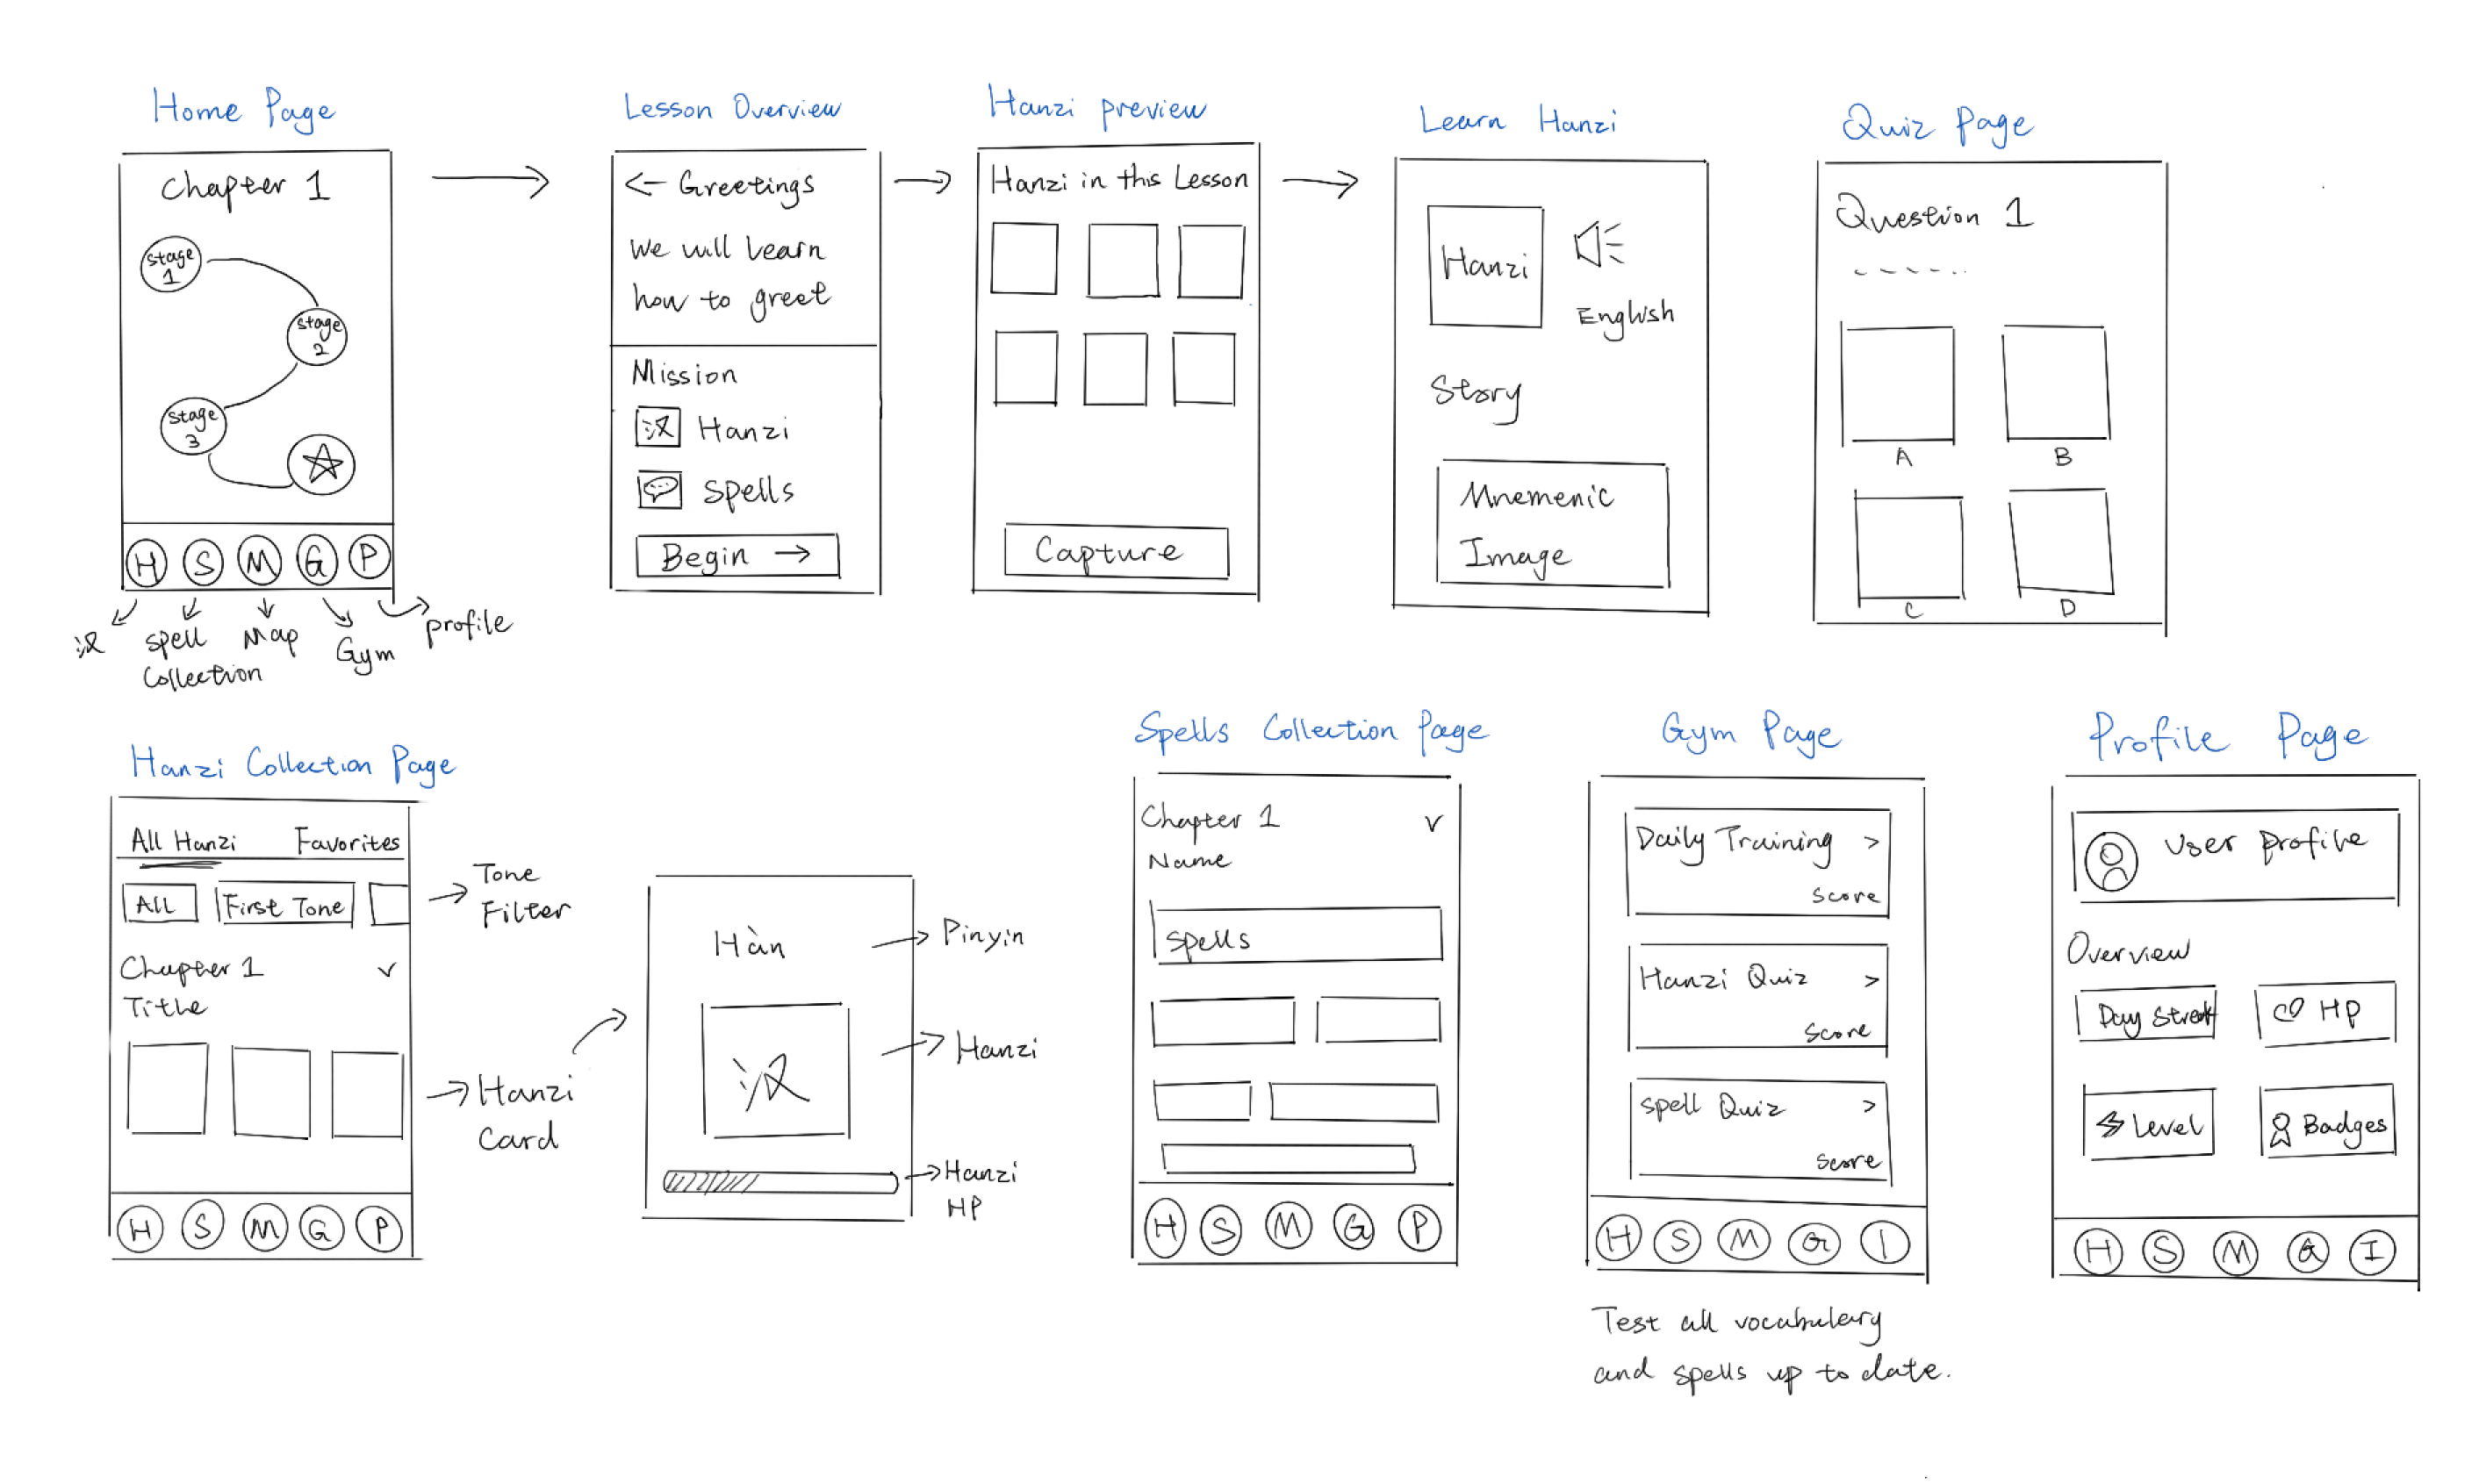 Home Page
Chapter 1
Stage 1
Stage 2
Stage 3
H S M G P
汉
Spell Collection
Map
Gym
profile
Lesson Overview
<- Greetings
We will learn
how to greet
Mission
汉 Hanzi
Spells
Begin →
Hanzi preview
Hanzi in this Lesson
Capture
Learn Hanzi
Hanzi
English
Story
Mnemenic
Image
Quiz Page
Question 1
A
B
C
D
Hanzi Collection Page
All Hanzi Favorites
All First Tone
Chapter 1
Tithe
H S M G P
Tone
Filter
Hanzi
Card
Hàn
汉
Pinyin
Hanzi
Hanzi
HP
Spells Collection Page
Chapter 1
Name
Spells
H S M G P
Gym Page
Daily Training >
Score
Hanzi Quiz >
Score
Spell Quiz >
Score
H S M G I
Test all vocabulary
and spells up to date.
Profile Page
User Profile
Overview
Day Streak
HP
Level
Badges
H S M G I